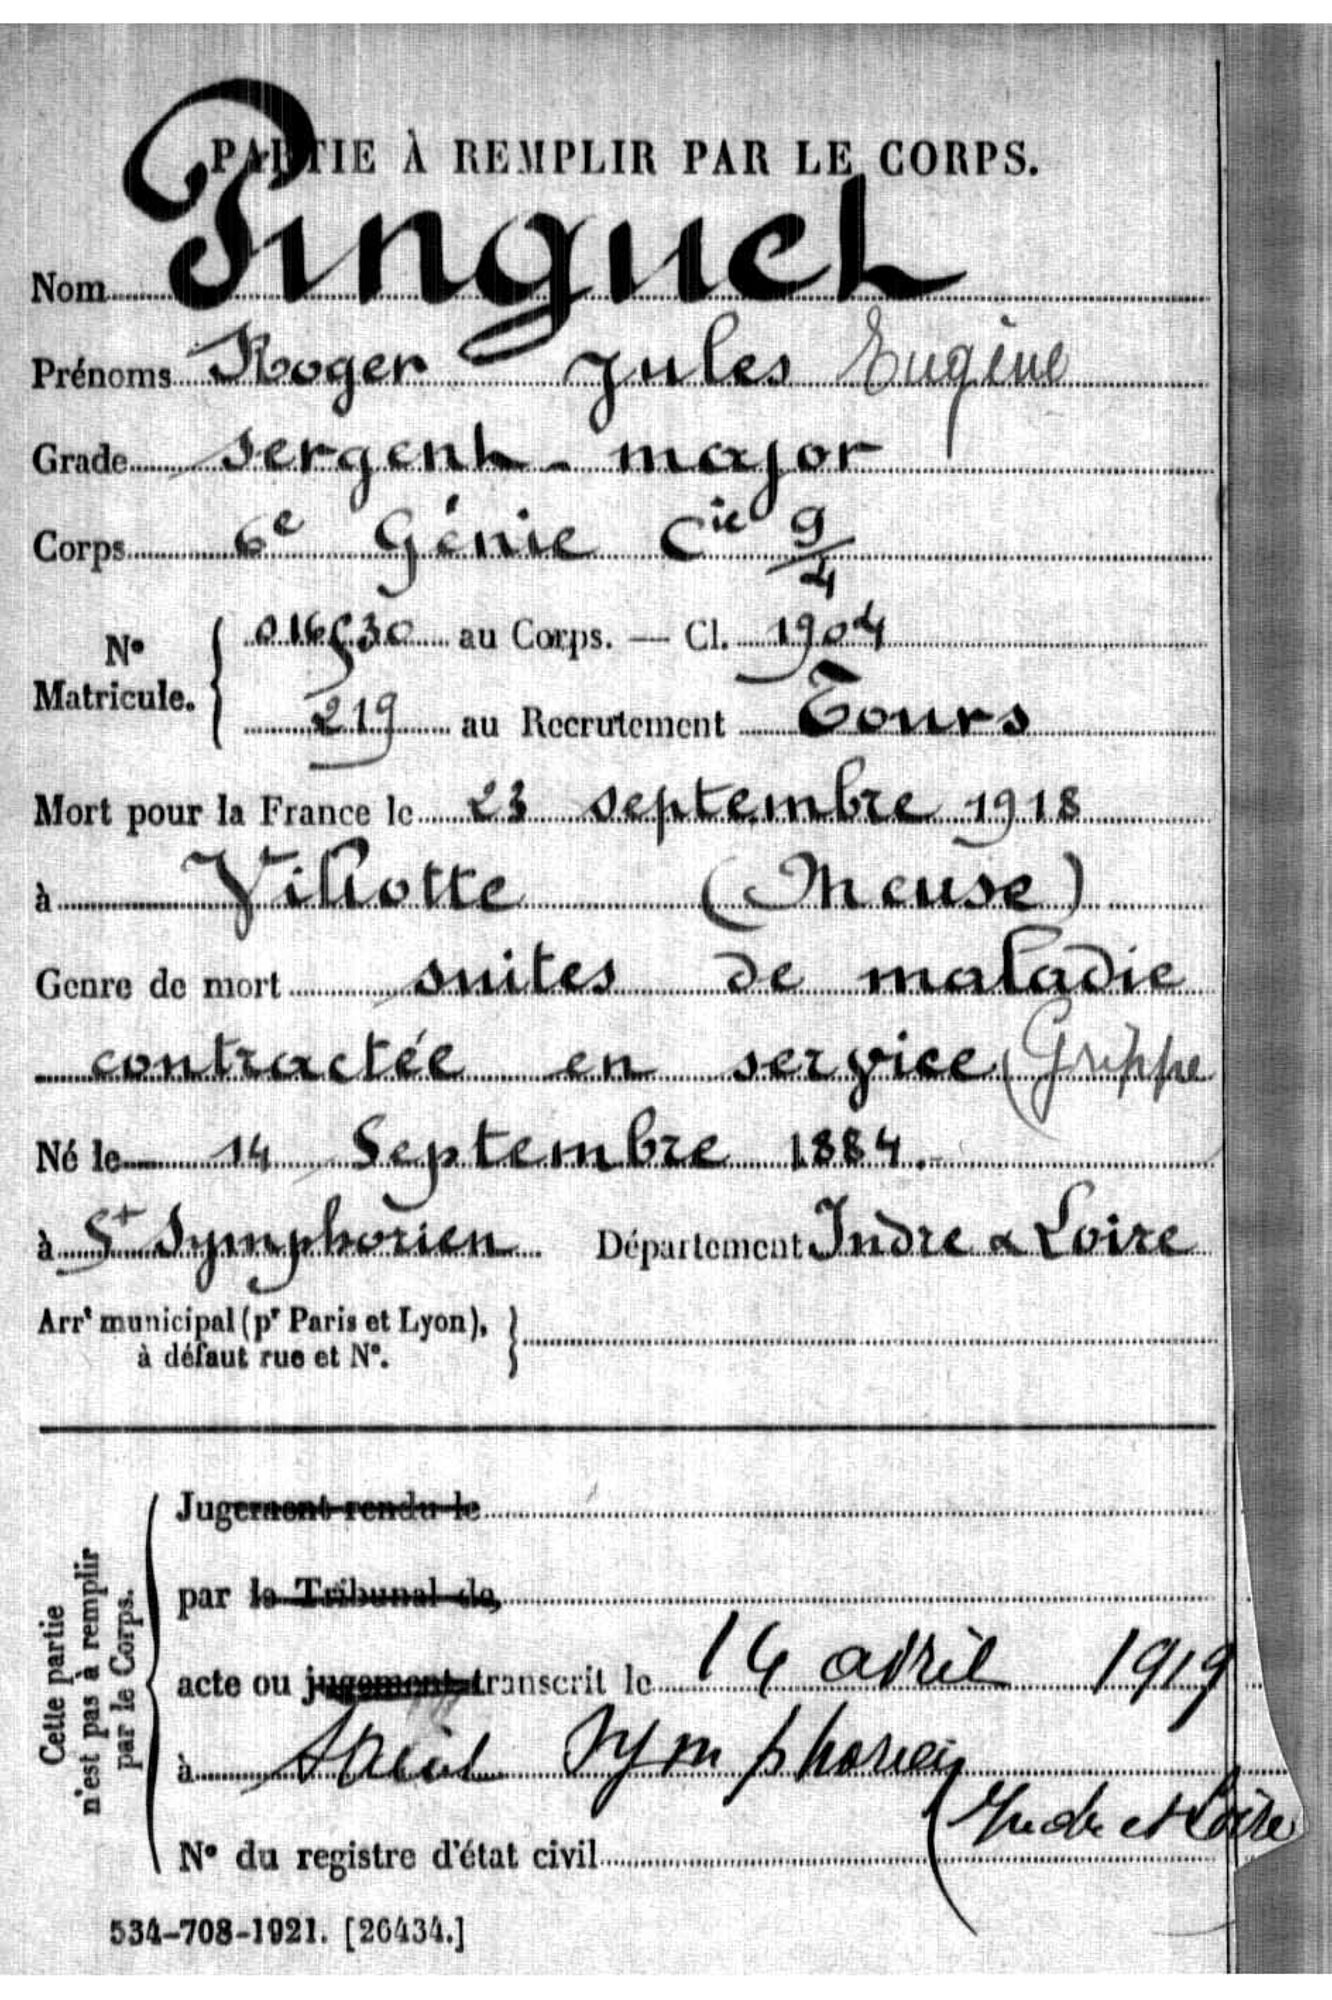 PARTIE À REMPLIR PAR LE CORPS.
Nom Pinguet
Prénoms Roger Jules Eugène
Grade sergent-major
Corps 6e Génie Cie 9/4
No Matricule. { 016530 au Corps. — Cl. 1904
219 au Recrutement Tours
Mort pour la France le 23 septembre 1918
à Villotte (Meuse)
Genre de mort suites de maladie
contractée en service (Grippe
Né le 14 Septembre 1884.
à St Symphorien Département Indre & Loire
Arrt municipal (pr Paris et Lyon), }
à défaut rue et No.
Cette partie
n'est pas à remplir
par le Corps.
Jugement rendu le
par le Tribunal de,
acte ou jugement transcrit le 14 avril 1919
à Saint Symphorien
(Indre et Loire
No du registre d'état civil
534-708-1921. [26434.]